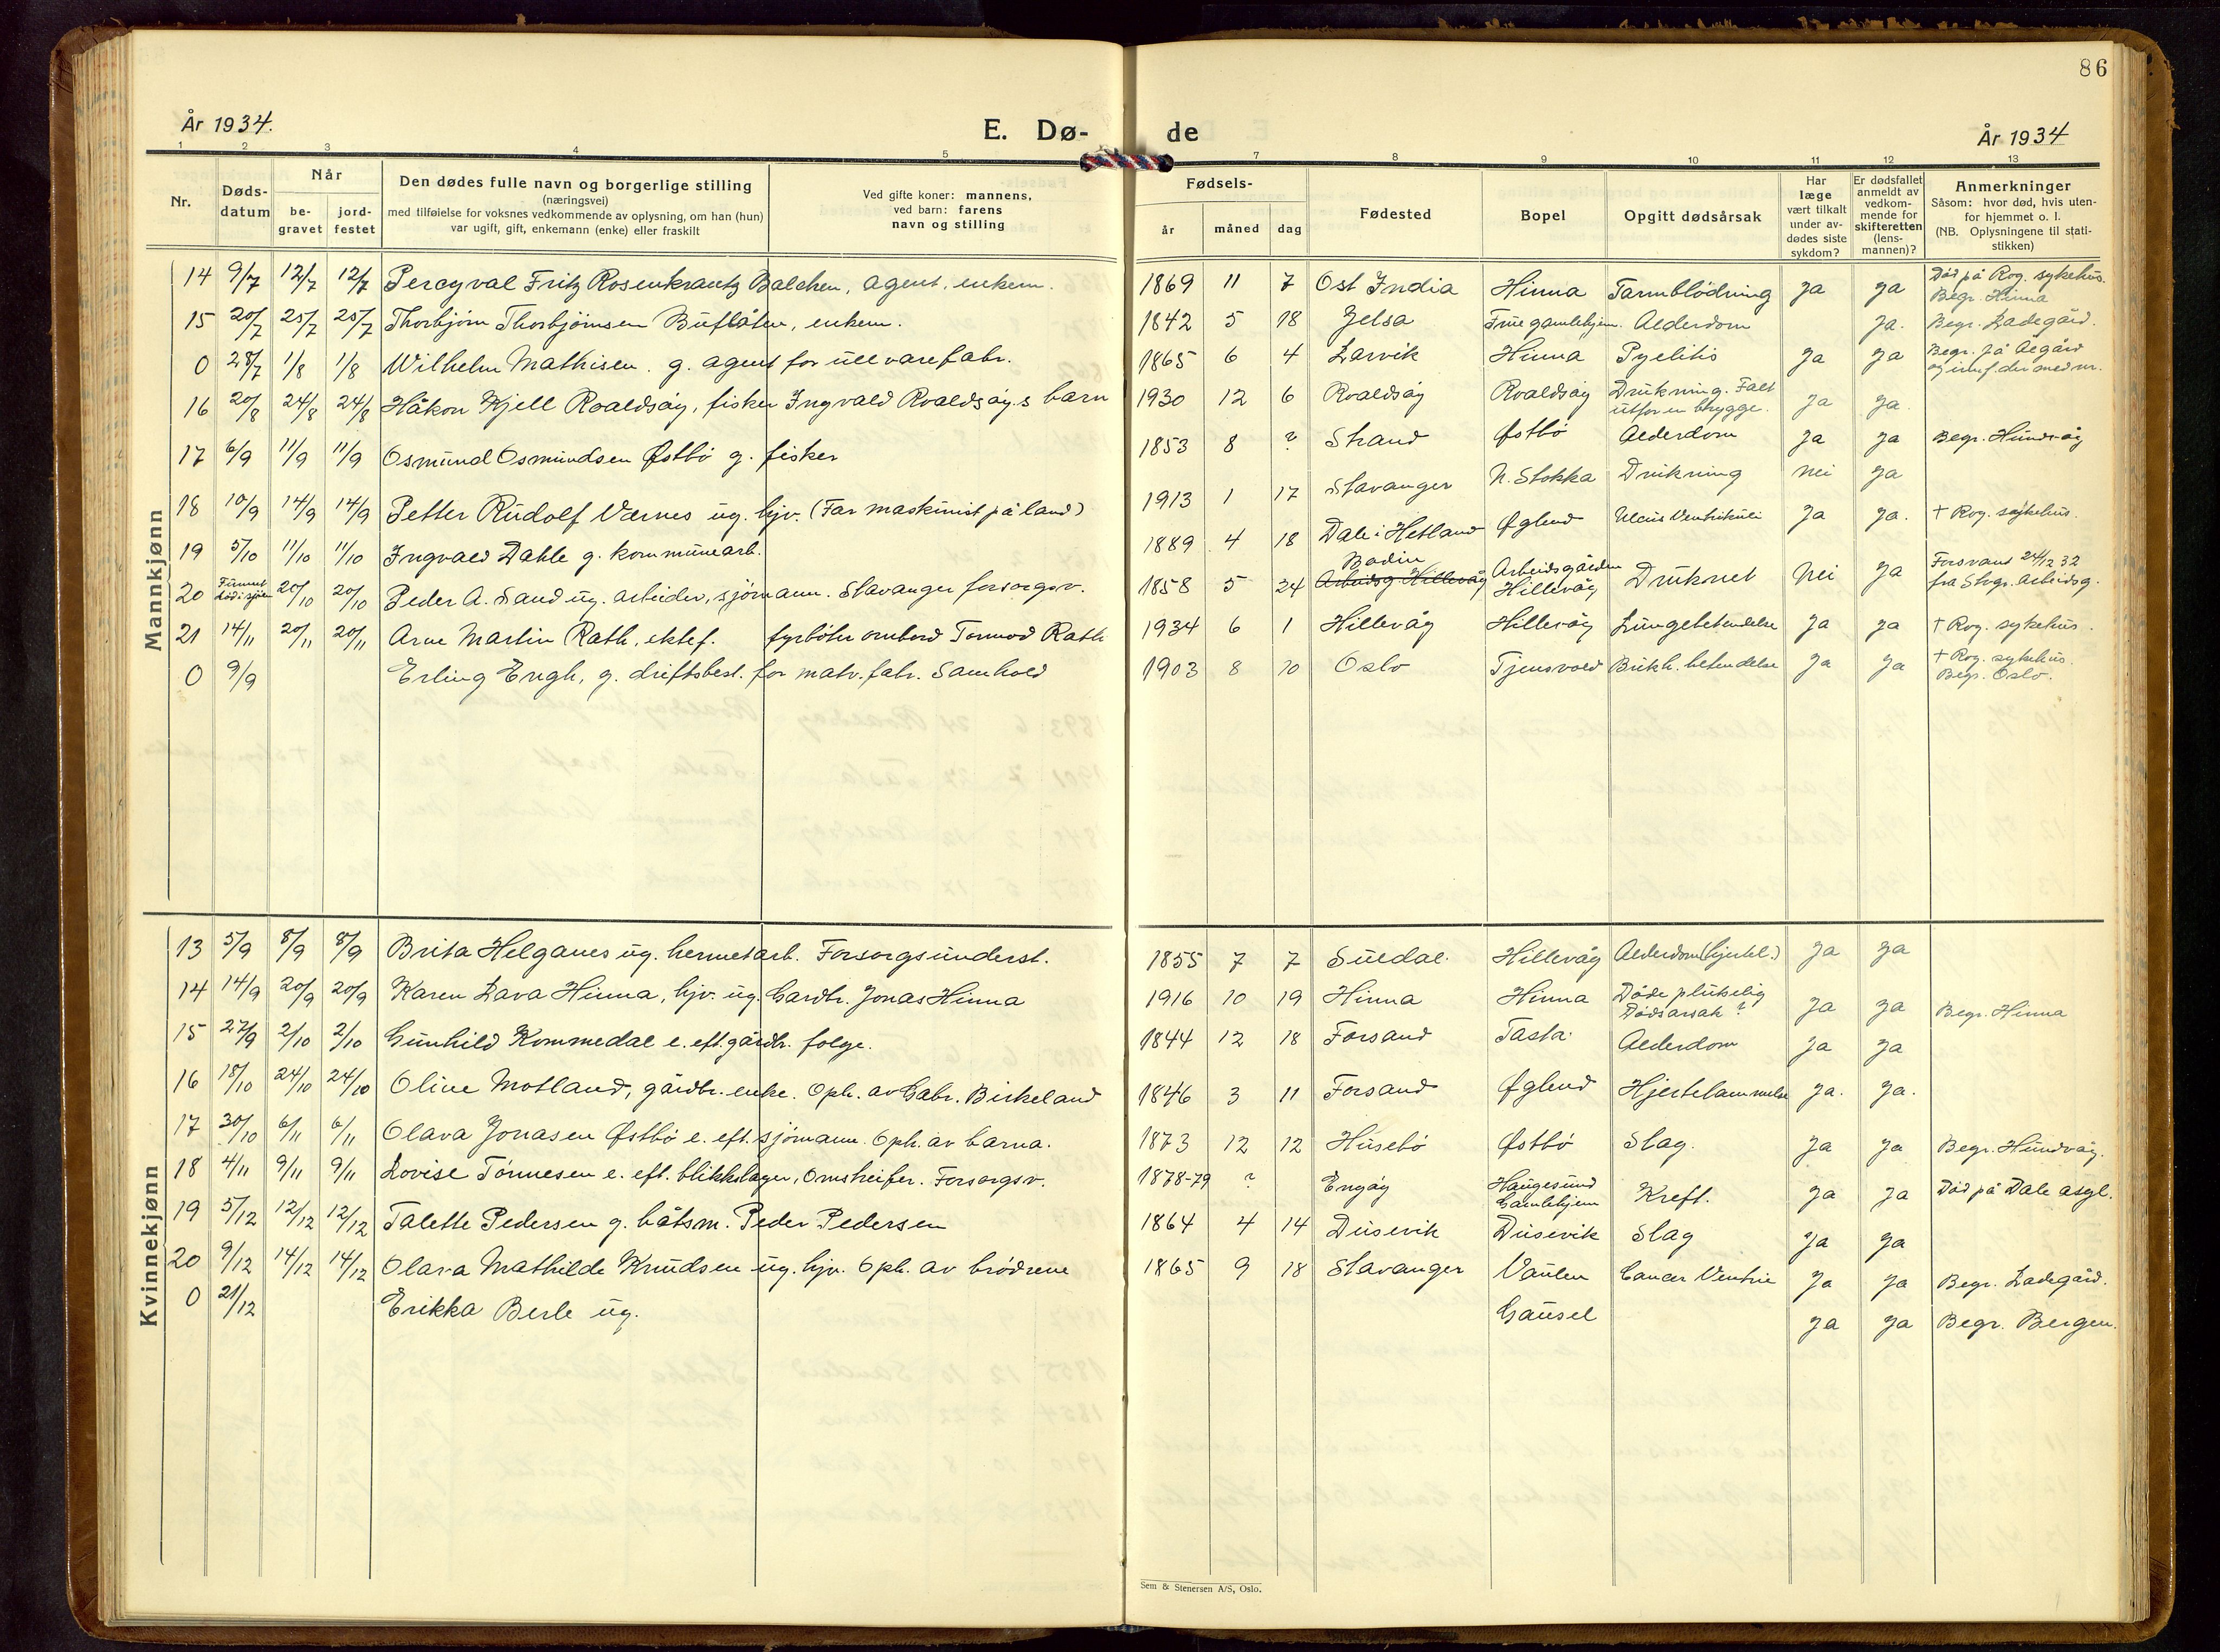 86
År 1934.
E. Dø-
de
År 1934
1 2 3 4 5 7 8 9 10 11 12 13
Nr.
Døds-
datum
Når
be-
gravet
jord-
festet
Den dødes fulle navn og borgerlige stilling
(næringsvei)
med tilføielse for voksnes vedkommende av oplysning, om han (hun)
var ugift, gift, enkemann (enke) eller fraskilt
Ved gifte koner: mannens,
ved barn: farens
navn og stilling
Fødsels-
år måned dag
Fødested
Bopel
Opgitt dødsårsak
Har
læge
vært tilkalt
under av-
dødes siste
sykdom?
Er dødsfallet
anmeldt av
vedkom-
mende for
skifteretten
(lens-
mannen)?
Anmerkninger
Såsom: hvor død, hvis uten-
for hjemmet o. l.
(NB. Oplysningene til stati-
stikken)
Mannkjønn
14 9/7 12/7 12/7 Percyval Fritz Rosenkrantz Balchen, agent, enkem. 1869 11 7 Ost India Hinna Tarmblödning ja ja Död på Rog. sykehus.
Begr. Hinna
15 20/7 25/7 25/7 Thorbjörn Thorbjörnsen Buflåten, enkem. 1842 5 18 Jelsa Frue gamlehjem. Alderdom ja. Begr. Ladegård.
0 28/7 1/8 1/8 Wilhelm Mathisen. g. agent for ullvarefabr. 1865 6 4 Larvik Hinna Pyelitis ja ja Begr. på Åegård
16 20/8 24/8 24/8 Håkon Kjell Roaldsöy, fisker Ingvald Roaldsöy,s barn 1930 12 6 Roaldsöy Roaldsöy Drukning. Falt
utfor en brygge. ja ja.
17 6/9 11/9 11/9 Osmund Osmundsen Østbö g. fisker 1853 8 ? Strand Østbö Alderdom ja ja Begr. Hundvåg
18 10/9 14/9 14/9 Petter Rudolf Værnes ug. hjv. (Far maskinist på land) 1913 1 17 Stavanger N. Stokka Drukning nei ja
19 5/10 11/10 11/10 Ingvald Dahle g. kommunearb. 1889 4 18 Dale i Hetland Øglend Ulcus Ventriculi ja ja. † Rog. sykehus.
20 Funnet
död i sjöen 20/10 20/10 Peder A. Sand ug. arbeider, sjömann. Stavanger forsorgsv. 1858 5 24 Bodin
Arbeidsg. Hillevåg Arbeidsgården
Hillevåg Druknet Nei ja Forsvant 24/12 32
fra Stvgr. arbeidsg.
21 14/11 20/11 20/11 Arne Martin Rath, ektef. fyrböter ombord Tormod Rath 1934 6 1 Hillevåg Hillevåg Lungebetendelse ja ja † Rog. sykehus.
0 9/9 Erling Engh, g. driftsbest. for matv. fabr. Samhold 1903 8 10 Oslo Tjensvold Bukh. betendelse ja ja † Rog. sykehus.
Begr. Oslo.
Kvinnekjønn
13 5/9 8/9 8/9 Brita Helganes ug. hermetarb. Forsorgsunderst. 1855 7 7 Suldal. Hillevåg Alderdom (hjertel.) ja ja
14 14/9 20/9 20/9 Karen Lava Hinna, hjv. ug. Gardbr. Jonas Hinna 1916 10 19 Hinna Hinna Döde plutselig
Dödsarsak ? ja ja Begr. Hinna
15 27/9 2/10 2/10 Gunhild Kommedal e. eft. gårdbr. folge. 1844 12 18 Forsand Tasta. Alderdom ja ja
16 18/10 24/10 24/10 Oline Motland, gårdbr. enke. Oph. av Gabr. Birkeland 1846 3 11 Forsand Øglend Hjertelammelse ja. ja.
17 30/10 6/11 6/11 Olava Jonasen Østbö e. eft. sjömann. Oph. av barna. 1873 12 12 Husebö Østbö Slag. ja ja Begr. Hundvåg.
18 4/11 9/11 9/11 Lovise Tönnesen e. eft. blikkslager, Omstreifer. Forsorgsv. 1878-79 ? Engöy Haugesund
Gamlehjem Kreft. ja ja Död på Dale asyl.
19 5/12 12/12 12/12 Talette Pedersen g. båtsm. Peder Pedersen 1864 4 14 Dusevik Dusevik Slag ja ja
20 9/12 14/12 14/12 Olava Mathilde Knudsen ug. hjv. Oph. av brödrene 1865 9 18 Stavanger Vaulen Cancer Ventric ja ja Begr. Ladegård.
0 21/12 Erikka Berle ug. Gausel ja ja Begr. Bergen.
Sem & Stenersen A/S, Oslo.